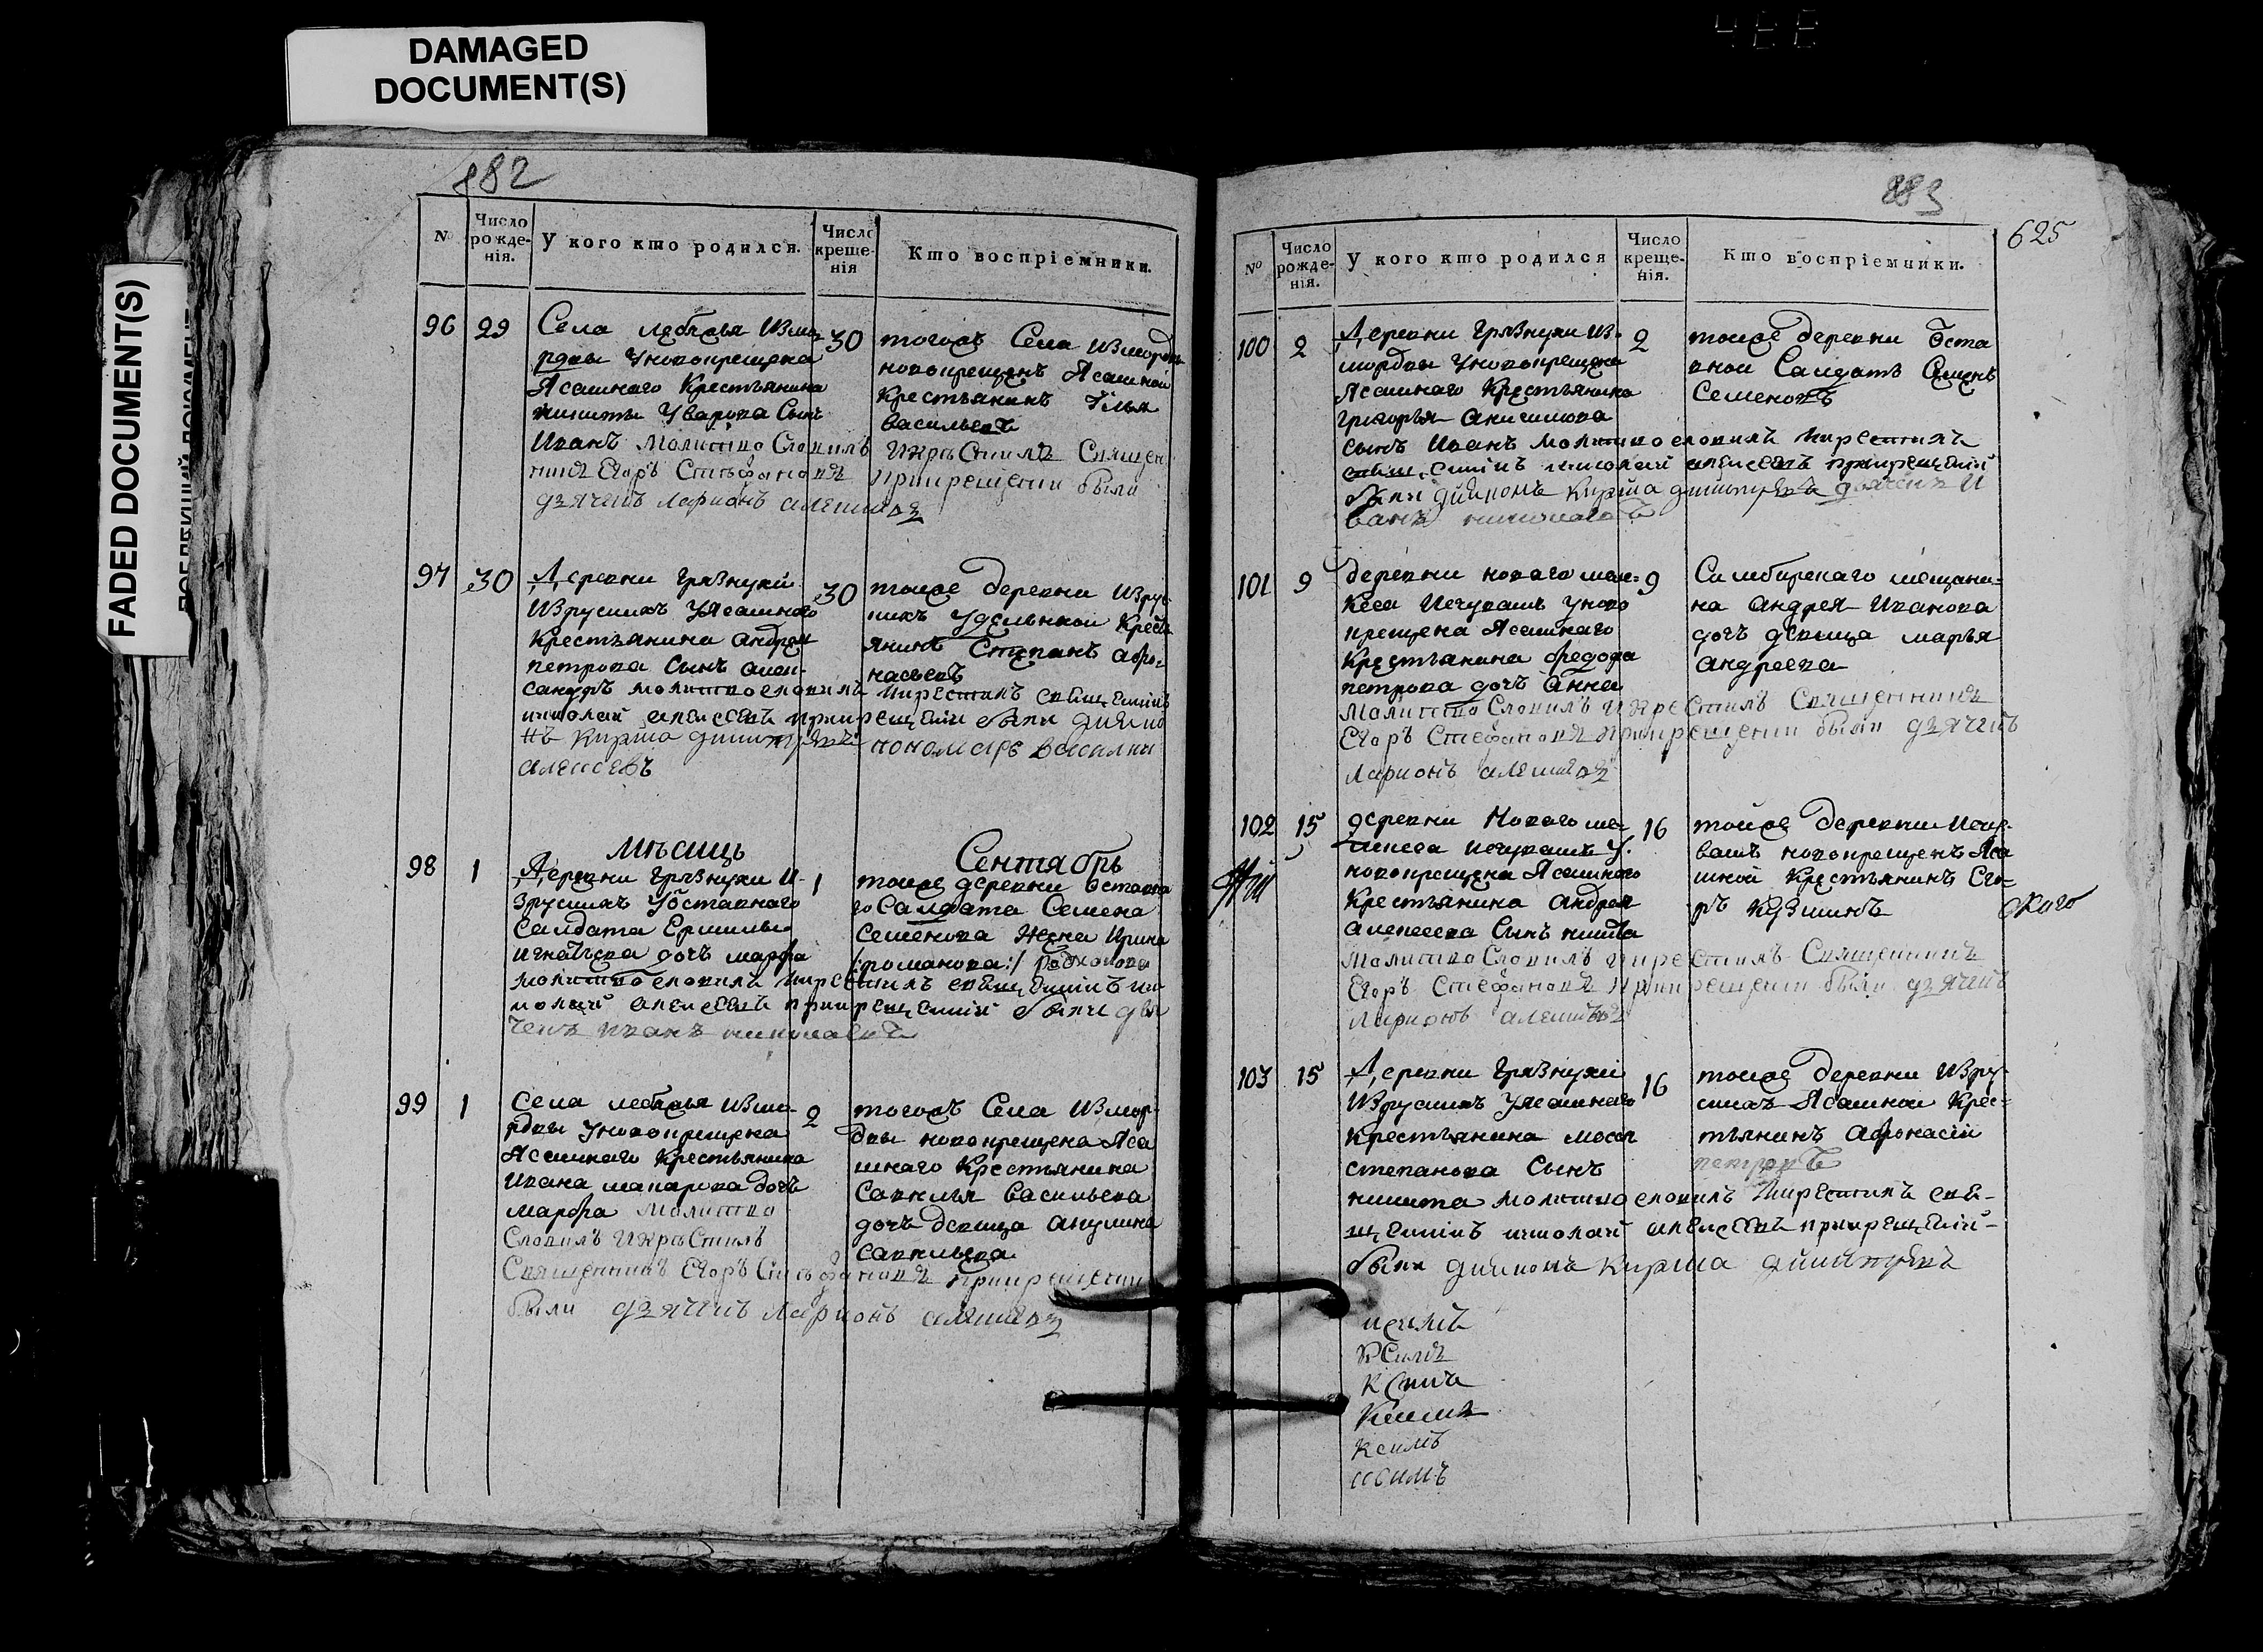 DAMAGED
DOCUMENT(S)
FADED DOCUMENT(S)
882
№
Число рожде-нія.
У кого кто родился.
Число креще-нія
Кто воспріемники.
96 29 30
Села
рдвы Уновокрещена
Ясашнаго Крестьянина
никиты Уварова Сынъ
Иванъ Молитво Словилъ
Егоръ Стефановъ
дьячекъ Ларионъ
тогожъ Села измордвы
новокрещенъ Ясашной
Крестьянинъ Илья
васильевъ
Икрестилъ Священ
прикрещении были
97 30 30
Деревни грязнухи
Изрусскихъ Уясашного
Крестьянина андрея
петрова Сынъ алек-
сандръ молитвословилъ икрестилъ священникъ
николай алексеевъ прикрещении были диако
нъ Кирила димитриевъ пономарь василий
алексеевъ
тойже деревни Изрус
никъ Удельной Кресть
янинъ Степанъ афо-
насьевъ
Мѣсяць Сентябрь
98 1 1
Деревни грязнухи И-
зрусскихъ Уоставнаго
Салдата
игнатьева дочь марфа
молитвословилъ икрестилъ священникъ ни
колай алексеевъ прикрещении были дья
чекъ иванъ николаевъ
тойже деревни оставна
го Салдата Семена
Семенова Жена Ирина
/:романова:/
99 1 2
Села измо-
рдвы Уновокрещена
Ясашнаго Крестьянина
Ивана макарова дочь
марфа Молитво
Словилъ Икрестилъ
Священникъ Егоръ Стефановъ прикрещении
были дьячекъ Ларионъ
тогожъ Села Измор-
двы новокрещена Яса
шнаго Крестьянина
Савелья Васильева
дочь девица акулина
савельева
883
625
№
Число рожде-нія.
У кого кто родился
Число креще-нія.
Кто воспріемники.
100 2 2
Деревни грязнухи Из-
мордвы Уновокрещена
Ясашнаго Крестьянина
григорья анисимова
сынъ Иванъ молитвословилъ икрестилъ
николай алексеевъ прикрещении
были диаконъ Кирила димитриевъ дьячекъ И
ванъ николаевъ
тойже деревни Оста
вной Салдатъ Семенъ
Семеновъ
101 9 9
деревни новаго
Изчувашъ Уново
крещена Ясашнаго
Крестьянина федора
петрова дочь Анна
Молитво Словилъ Икрестилъ Священникъ
Егоръ Стефановъ прикрещении были дьячекъ
Ларионъ
Симбирскаго мещани-
на андрея Иванова
дочь девица марья
андреева
102 15 16
деревни Новаго
Изчувашъ У.
новокрещена Ясашнаго
Крестьянина андрея
алексеева Сынъ никита
Молитво Словилъ икрестилъ Священникъ
Егоръ Стефановъ прикрещении были дьячекъ
Ларионъ
тойже деревни Изчу-
вашъ новокрещенъ Яса
шной Крестьянинъ Его-
ръ Кузминъ
103 15 16
Деревни грязнухи
Изрусскихъ Уясашнаго
Крестьянина
степанова Сынъ
никита молитвословилъ икрестилъ свя-
щенникъ николай алексеевъ прикрещении
были диаконъ Кирила димитриевъ
тойже деревни Изру-
скихъ Ясашной Крес-
тьянинъ афонасей
петровъ